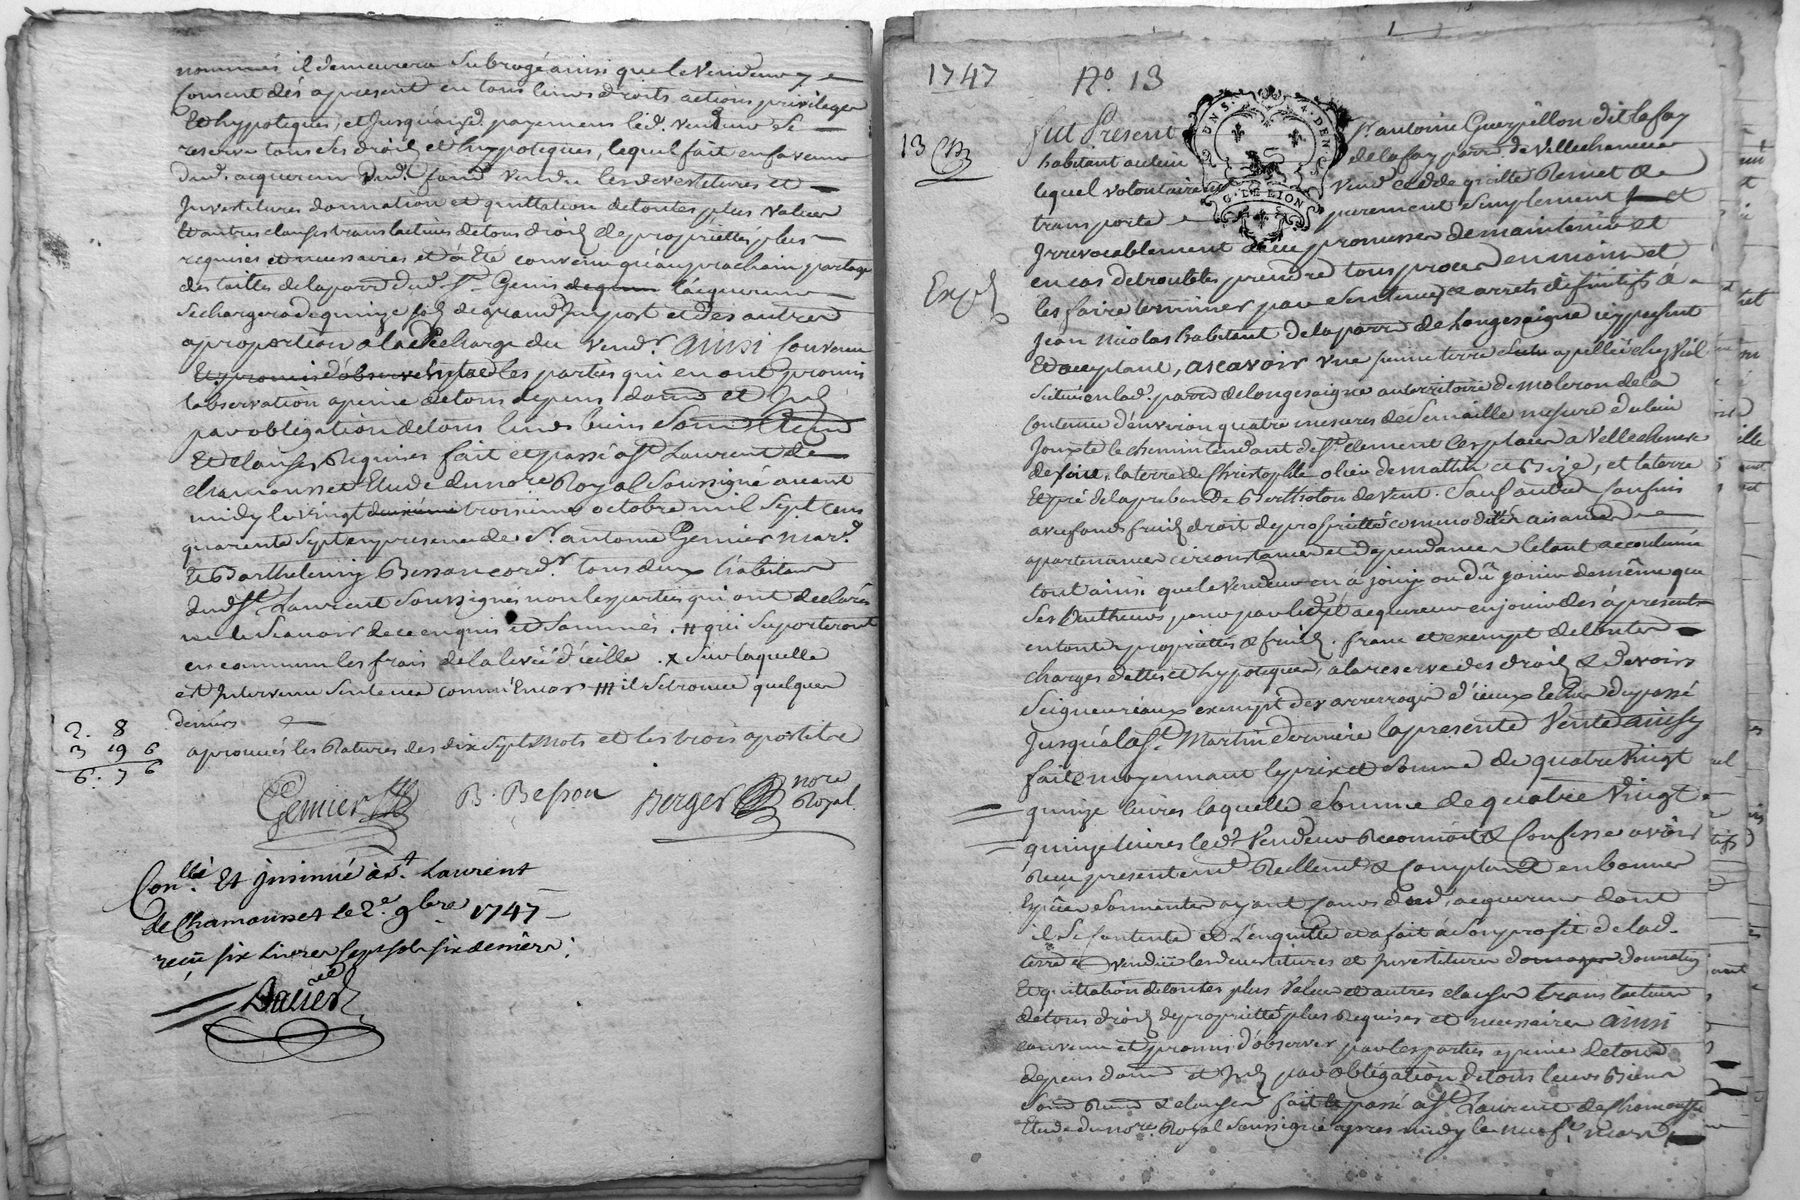 nommés il demeurera subrogé ainsi que le vendeur y
consent dés apresent en tous leurs droits actions privileges
Et hypoteques, et jusqu'aud. payement led. vendeur se
reserve tous ses droits et hypoteques, lequel fait en faveur
dud. acquereur dud. fond vendu les devestitures et
Investitures donnation et quittation de toutes plus values
Et autres clauses translatives de tous droits de proprietté plus
requises et necessaires et à Eté convenu qu'au prochain partage
des tailles de la parr. dud. St. Genis l'acquereur
se chargera de quinze sols de grand Import et des autres
a proportion a la decharge du vend.r ainsi convenu
Et promis d'observer les parties qui en ont promis
l'observation a peine de tous depens dom. et
par obligation de tous leurs biens
Et clauses Requises fait et passé a St. Laurent de
chamousset Etude du nore. Royal soussigné avant
midy le vingt troisieme octobre mil sept cens
quarante sept en presence de Sr. antoine Genier mar.d
Et Barthelemy Besson cord.r tous deux habitans
dud. St. Laurent soussignés non les parties qui ont declarés
ne le scavoir de ce enquis et sommés. # qui suporteront
en commun les frais de la levée d'icelle . x sur laquelle
est Intervenu sentence il se trouve quelques
deniers
aprouvés les Ratures des dix sept mots et les trois apostilles
2. 8
3 19 6
6. 7 6
Genier B. Besson Berger nore Royal.
Con.llé Et Insinué à St. Laurent
de Chamousset le 2.e 9bre 1747
reçu six Livres sept sols six deniers.
1747 No. 13
13
Exp.
GEN. DE LION
fut Present Sr. antoine Guerpillon dit lafay
habitant au lieu de lafay parr. de Villecheneve
lequel volontairement vend cedde quitte Remet &
transporte purement simplement et
Irrevocablement avec promesse de maintenir et
en cas de troubles prendre tous proces en main et
les faire terminer par sentences & arrets définitifs à
Jean Nicolas habitant de la parr. de Longesaigne icy present
Et acceptant, ascavoir une terre apellée chez Vial
située en lad. parr. de longesaigne au territoire de moleron de la
contenue d'environ quatre mesures de semaille mesure du lieu
Jouxte le chemin tendant de St. clement les places a Villecheneve
de soir, la terre de Christophle olier de mattin et bize, et la terre
Et pré de la prebande Bertholon de vent. sauf autres confins
avec fonds fruits droit de proprietté commodités aisances
apartenances circonstances et dependances le tout accoutumé
tout ainsi que le vendeur en à jouy ou dû jouir de même que
ses autheurs pour par led. acquereur en jouir dés à present
en toutes propriettés & fruits. franc et exempt de toutes
charges dettes et hypoteques, à la reserve des droits & devoirs
seigneuriaux exempt des arrerages d'iceux Echus du passé
Jusqu'à la St. Martin derniere la presente Vente ainsy
faite moyennant le prix et somme de quatre Vingt
quinze livres laquelle somme de quatre Vingt
quinze livres led. Vendeur Reconnoit & Confesse avoir
Reçu presentement Reellement & Comptant en bonnes
Especes sonnantes ayant cours dud. acquereur dont
il se Contente et L'enquitte et a fait à son profit de lad.
terre vendüe les devestitures et Investitures donnation
Et quittation de toutes plus Values et autres clauses translatives
de tous droits de proprietté plus Requises et necessaires ainsi
convenu et promis d'observer par les parties a peine de tous
depens dom. et par obligation de tous leurs biens
& clauses fait & passé a St. Laurent de chamousset
Etude du nore. Royal soussigné apres midy le neuf.e mars